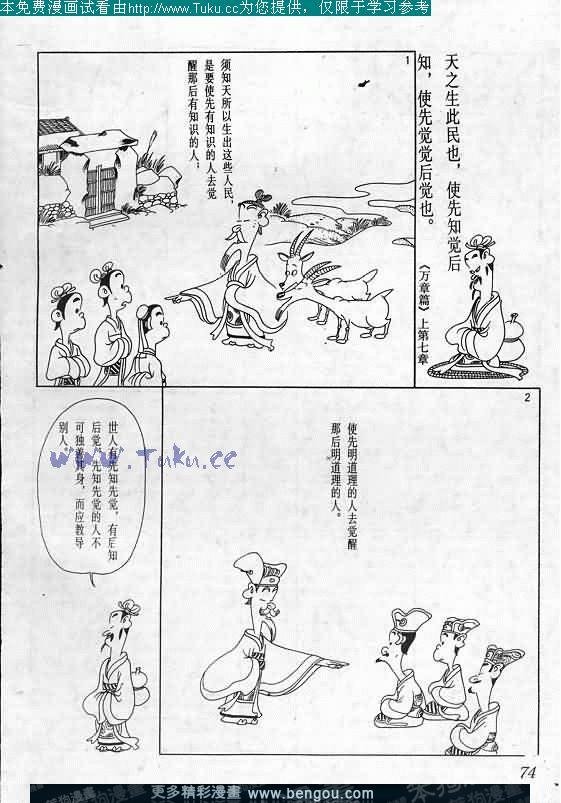 本免费漫画试看由http://www.Tuku.cc为您提供，仅限于学习参考
天之生此民也，使先知觉后
知，使先觉觉后觉也。
《万章篇》上第七章
1
须知天所以生出这些人民，
是要使先有知识的人去觉
醒那后有知识的人；
2
使先明道理的人去觉醒
那后明道理的人。
世人有先知先觉，有后知
后觉，先知先觉的人不
可独善其身，而应教导
别人。
www.Tuku.cc
74
更多精彩漫畫 www.bengou.com